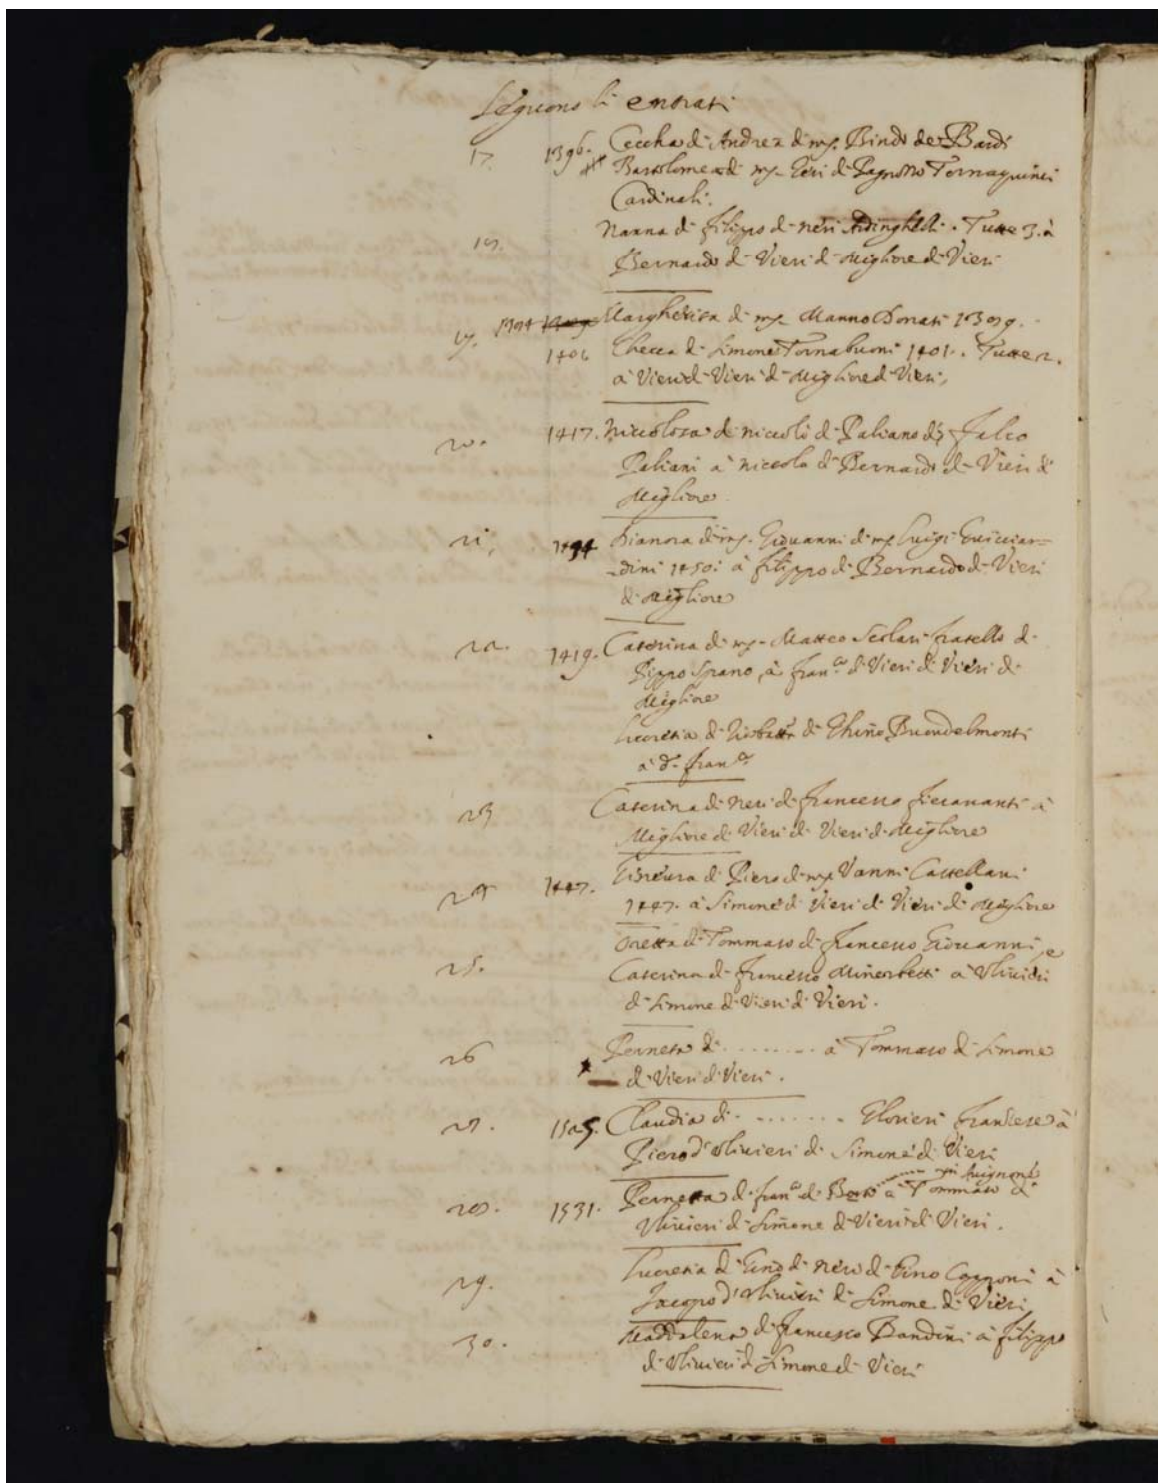 Seguono li entrati
17. 1396. Ceccha di Andrea di mp. Bindo de Bardi
Bartolomea di mp. Geri di Pagnozzo Tornaquinci
Cardinali.
Nanna di filippo di neri Ardinghelli. Tutte 3. à
Bernardo di Vieri di Migliore di Vieri
Margherita di mp. Manno Donati
1401 Checca di Simone Tornabuoni 1401. Tutte 2.
à Vieri di Vieri di Migliore di Vieri,
20. 1417. Niccolosa di niccolò di Paliano di Falco
Paliani à niccola di Bernardo di Vieri di
Migliore
21. Dianora di mp. Giovanni di mp. Luigi Guicciar=
=dini 1450: à filippo di Bernardo di Vieri
di Migliore
22. 1419. Caterina di mp. Matteo Scolari fratello di
Pippo Spano, à fran.co di Vieri di Vieri di
Migliore
Lucretia di Giobatta di Ghino Buondelmonti
à d. fran.co
23 Caterina di Neri di francesco fieravanti à
Migliore di Vieri di Vieri di Migliore
24 1447. Ginevra di Piero di mp. Vanni Castellani
1447. à Simone di Vieri di Vieri di Migliore
25. Oretta di Tommaso di francesco Giovanni, e
Caterina di francesco Minerbetti à Ulivieri
di Simone di Vieri di Vieri.
26 Perneta di ........ à Tommaso di Simone
di Vieri di Vieri.
27. 1525. Claudia di ........ franzese à
Piero d'Ulivieri di Simone di Vieri
in Avignone
28. 1531. Pernetta di fran.co di Berto à Tommaso di
Ulivieri di Simone di Vieri di Vieri.
29. Lucretia di Gino di Neri di Gino Capponi à
Jacopo d'Ulivieri di Simone di Vieri
30. Maddalena di francesco Bandini à filippo
di Ulivieri di Simone di Vieri